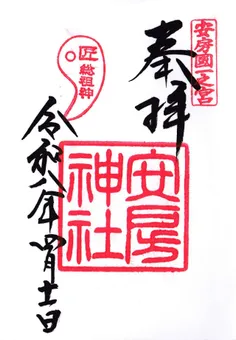 安房國一之宮
奉拝
匠総祖神
安房神社
令和八年四月十二日